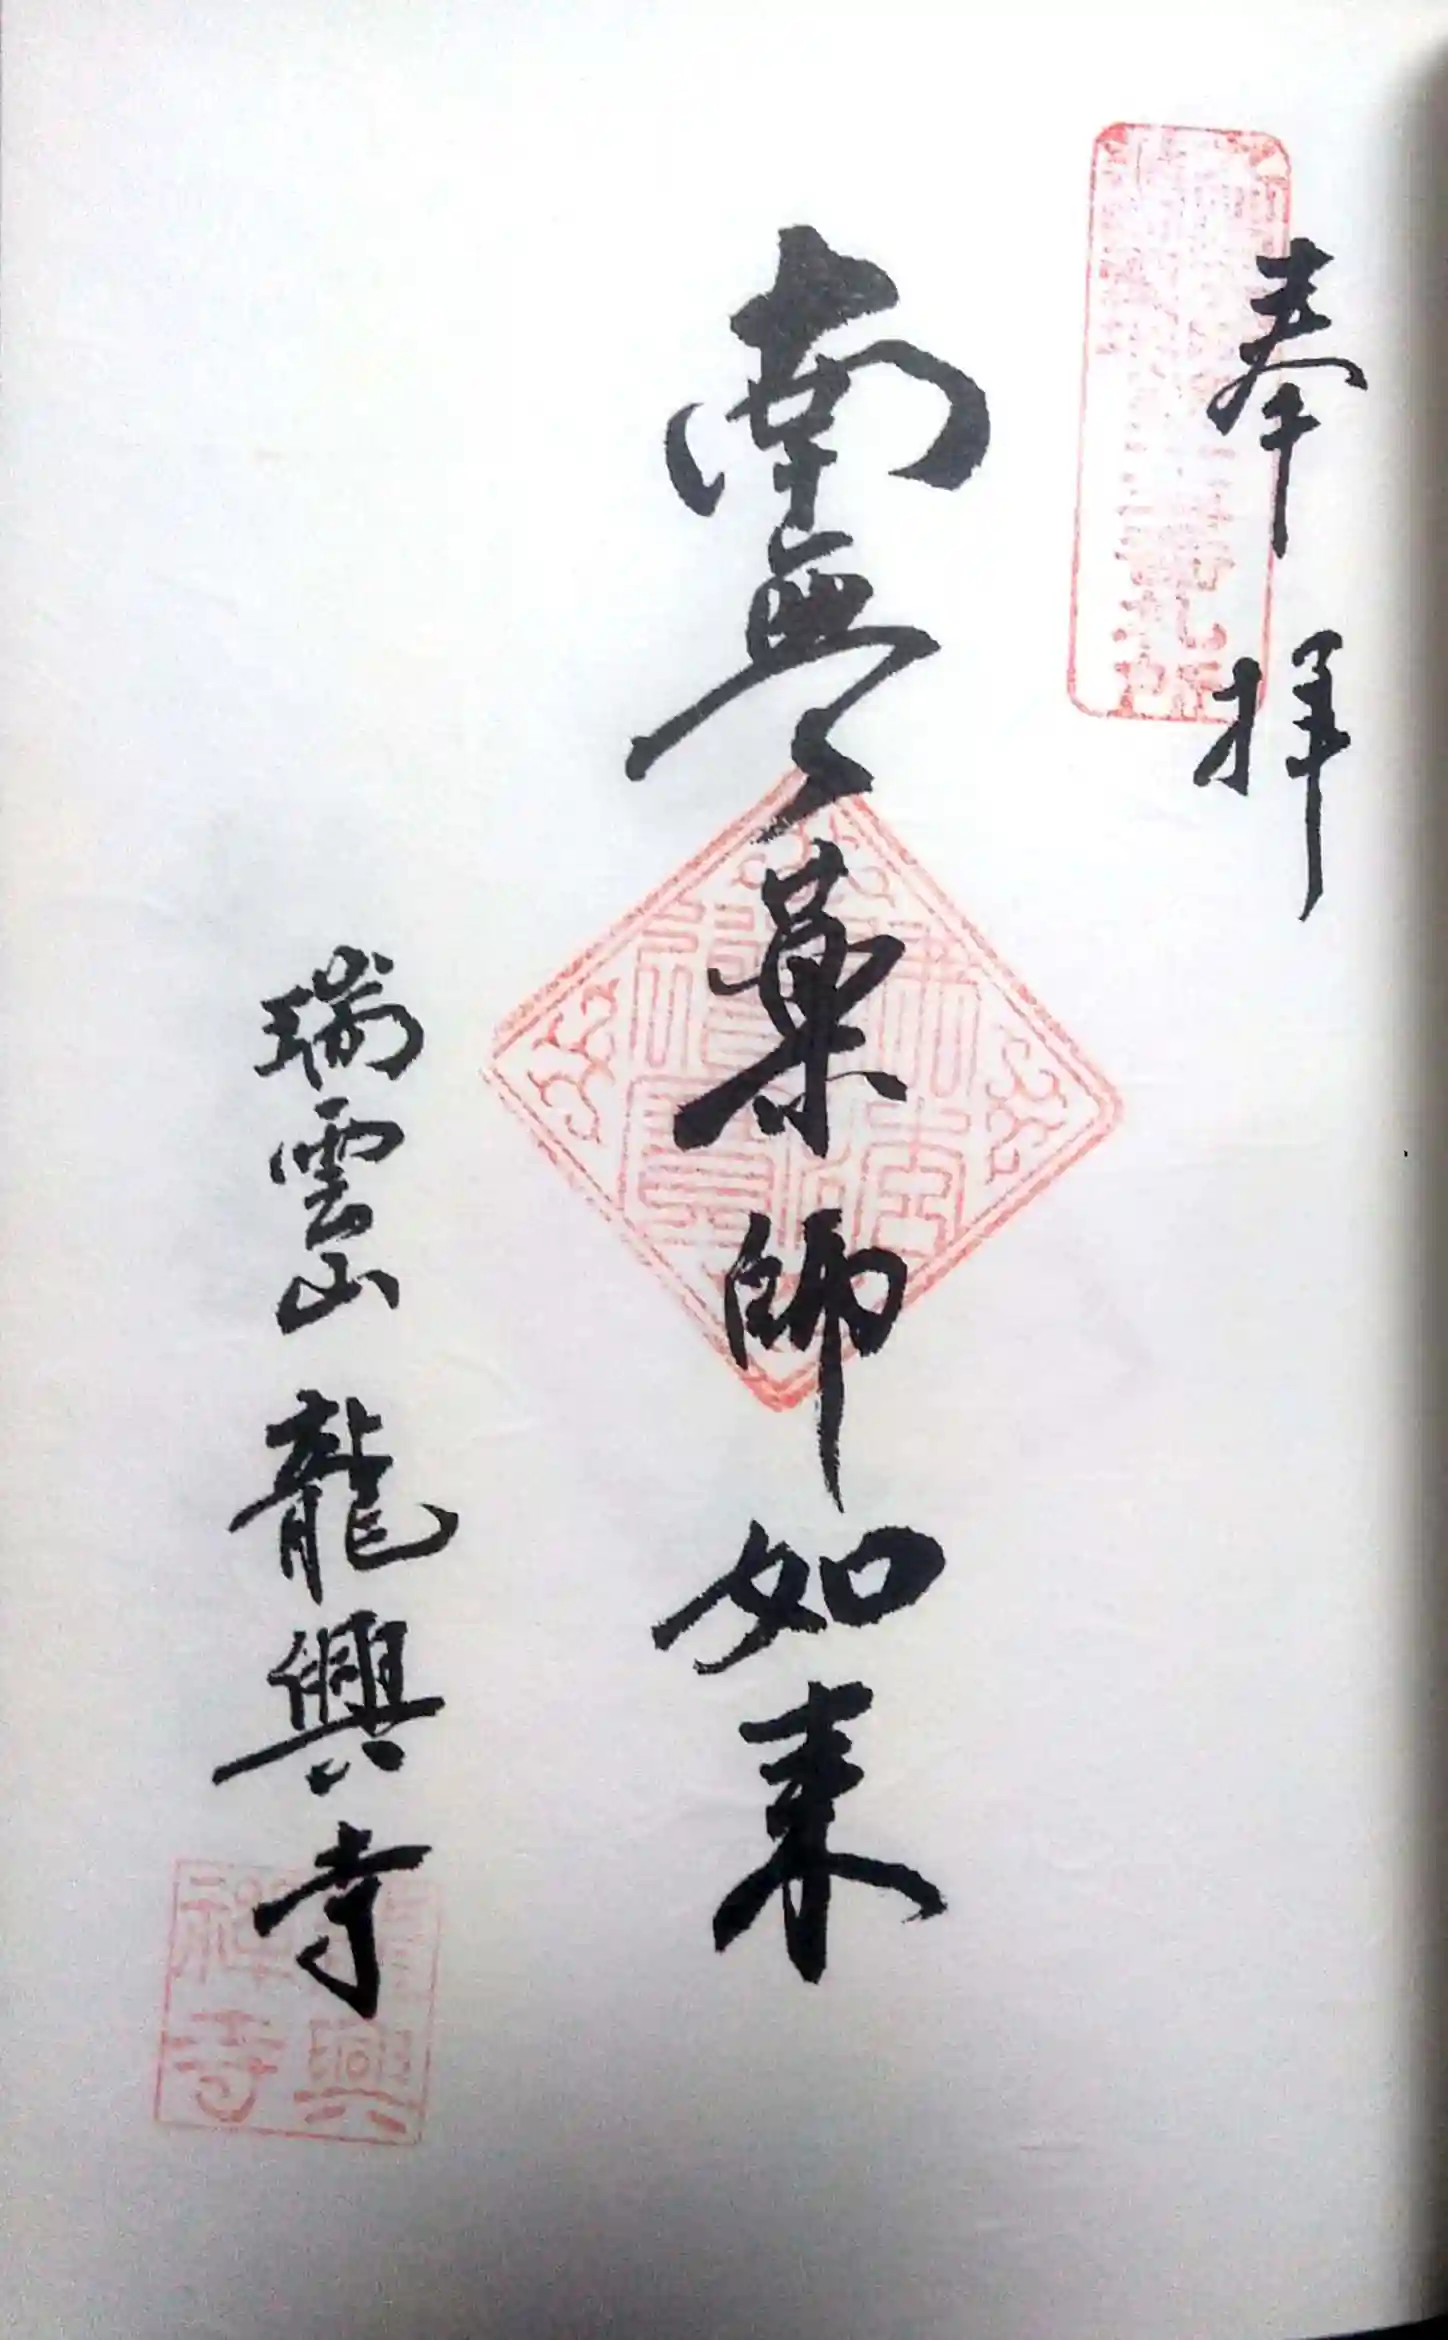 奉拝
南無薬師如来
瑞雲山龍興寺
龍興
禅寺